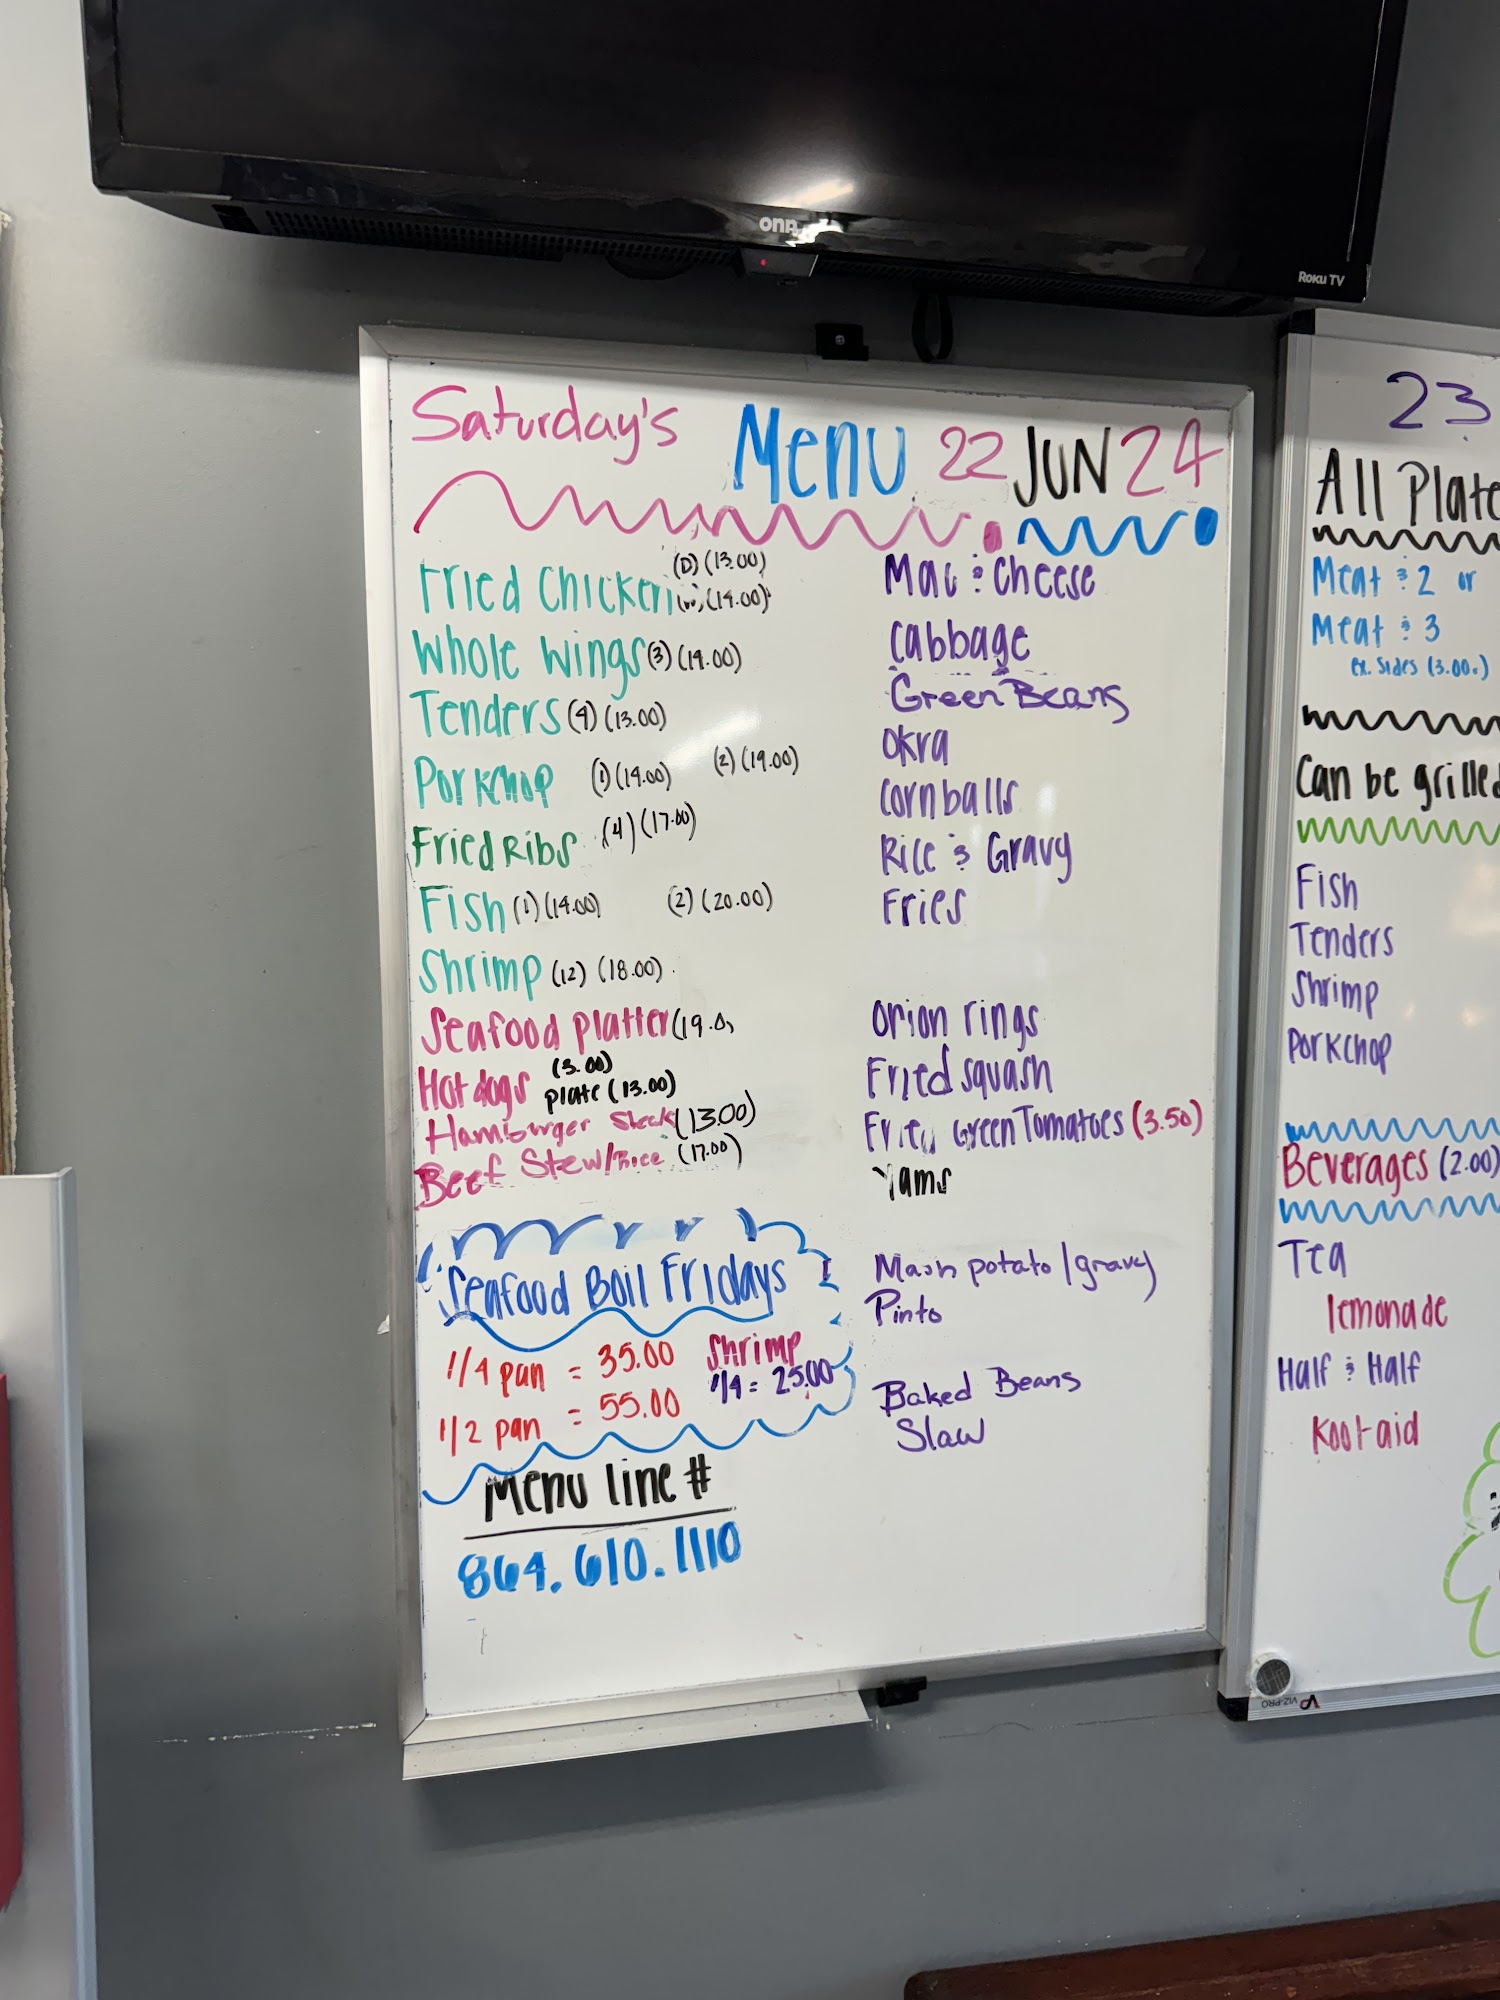 onn.
Roku TV
Saturday's Menu 22 JUN 24
Fried Chicken (D) (13.00)
(w) (14.00)
Whole Wings (3) (14.00)
Tenders (4) (13.00)
Porkchop (1) (14.00) (2) (19.00)
Fried Ribs (4) (17.00)
Fish (1) (14.00) (2) (20.00)
Shrimp (12) (18.00)
Seafood platter (19.0
Hot dogs (3.00)
plate (13.00)
Hamburger Steak (13.00)
Beef Stew/Rice (17.00)
Seafood Boil Fridays
1/4 pan = 35.00
1/2 pan = 55.00
Shrimp
1/4 = 25.00
Menu line #
864.610.1110
Mac & Cheese
Cabbage
Green Beans
Okra
Cornballs
Rice & Gravy
Fries
Onion rings
Fried squash
Fried Green Tomatoes (3.50)
Yams
Mash potato/gravy
Pinto
Baked Beans
Slaw
23
All Plate
Meat & 2 or
Meat & 3
ex. sides (3.00.)
Can be grilled
Fish
Tenders
Shrimp
Porkchop
Beverages (2.00)
Tea
lemonade
Half & Half
Kool-aid
VIZ-PRO